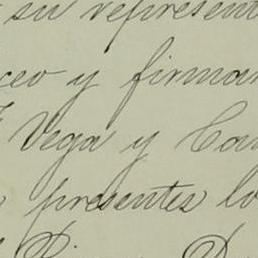 su represent
ceo y firman
Vega y Ca
presentes lo